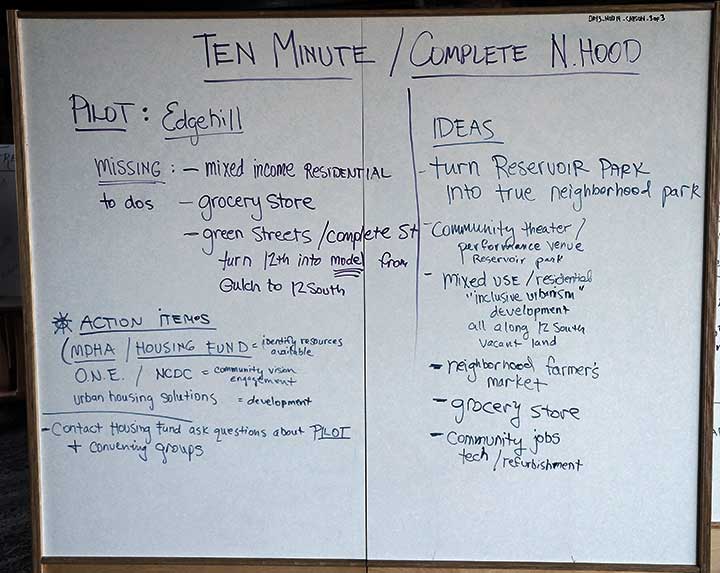 TEN MINUTE / COMPLETE N.HOOD
PILOT: Edgehill
MISSING: - mixed income RESIDENTIAL
to dos - grocery store
- green streets / complete St
turn 12th into model from
Gulch to 12 South
ACTION ITEMS
(MDHA / HOUSING FUND = identify resources
available
O.N.E. / NCDC = community vision
engagement
urban housing solutions = development
- Contact Housing Fund ask questions about PILOT
+ convening groups
IDEAS
- turn RESERVOIR PARK
into true neighborhood park
- Community theater /
performance venue
Reservoir park
- mixed USE / residential
"inclusive urbanism"
development
all along 12 South
vacant land
- neighborhood farmer's
market
- grocery store
- Community jobs
tech / refurbishment